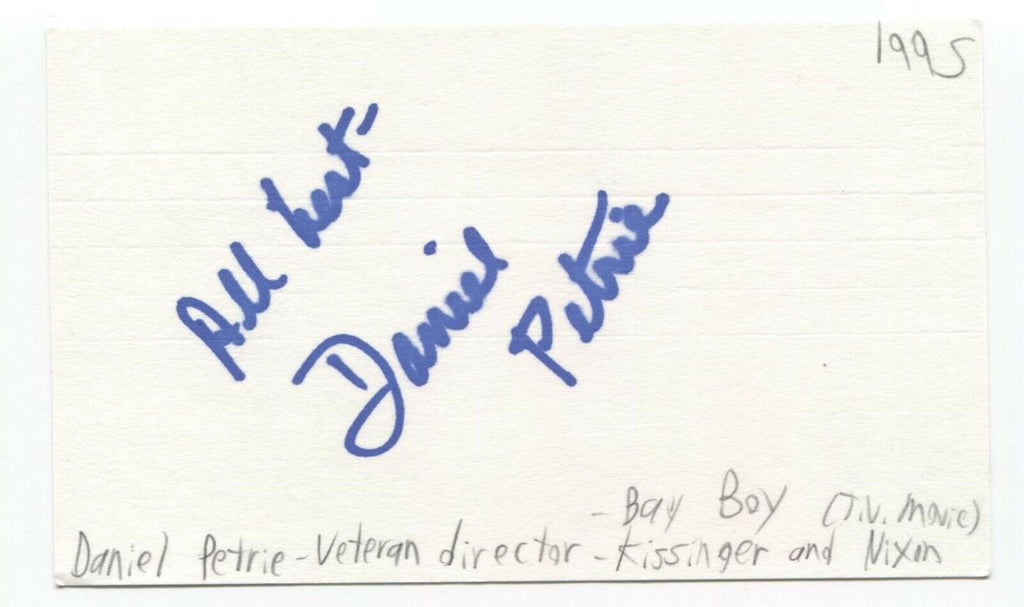 1995
All best-
Daniel
Petrie
- Bay Boy (T.V. movie)
Daniel Petrie - Veteran director - Kissinger and Nixon